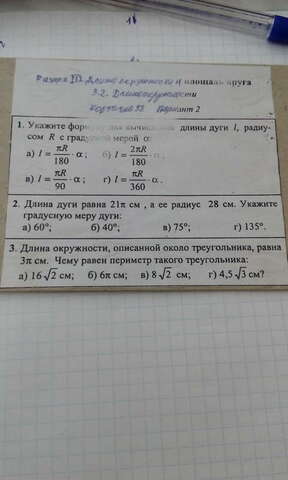 Раздел III. Длина окружности и площадь круга
3.2. Длина окружности
Карточка Вариант 2
1. Укажите формулу для вычисления длины дуги l, радиу-
сом R с градусной мерой α:
а) l = πR/180 · α; б) l = 2πR/180 · α;
в) l = πR/90 · α; г) l = πR/360 · α.
2. Длина дуги равна 21π см , а ее радиус 28 см. Укажите
градусную меру дуги:
а) 60°; б) 40°; в) 75°; г) 135°.
3. Длина окружности, описанной около треугольника, равна
3π см. Чему равен периметр такого треугольника:
а) 16√2 см; б) 6π см; в) 8√2 см; г) 4,5√3 см?